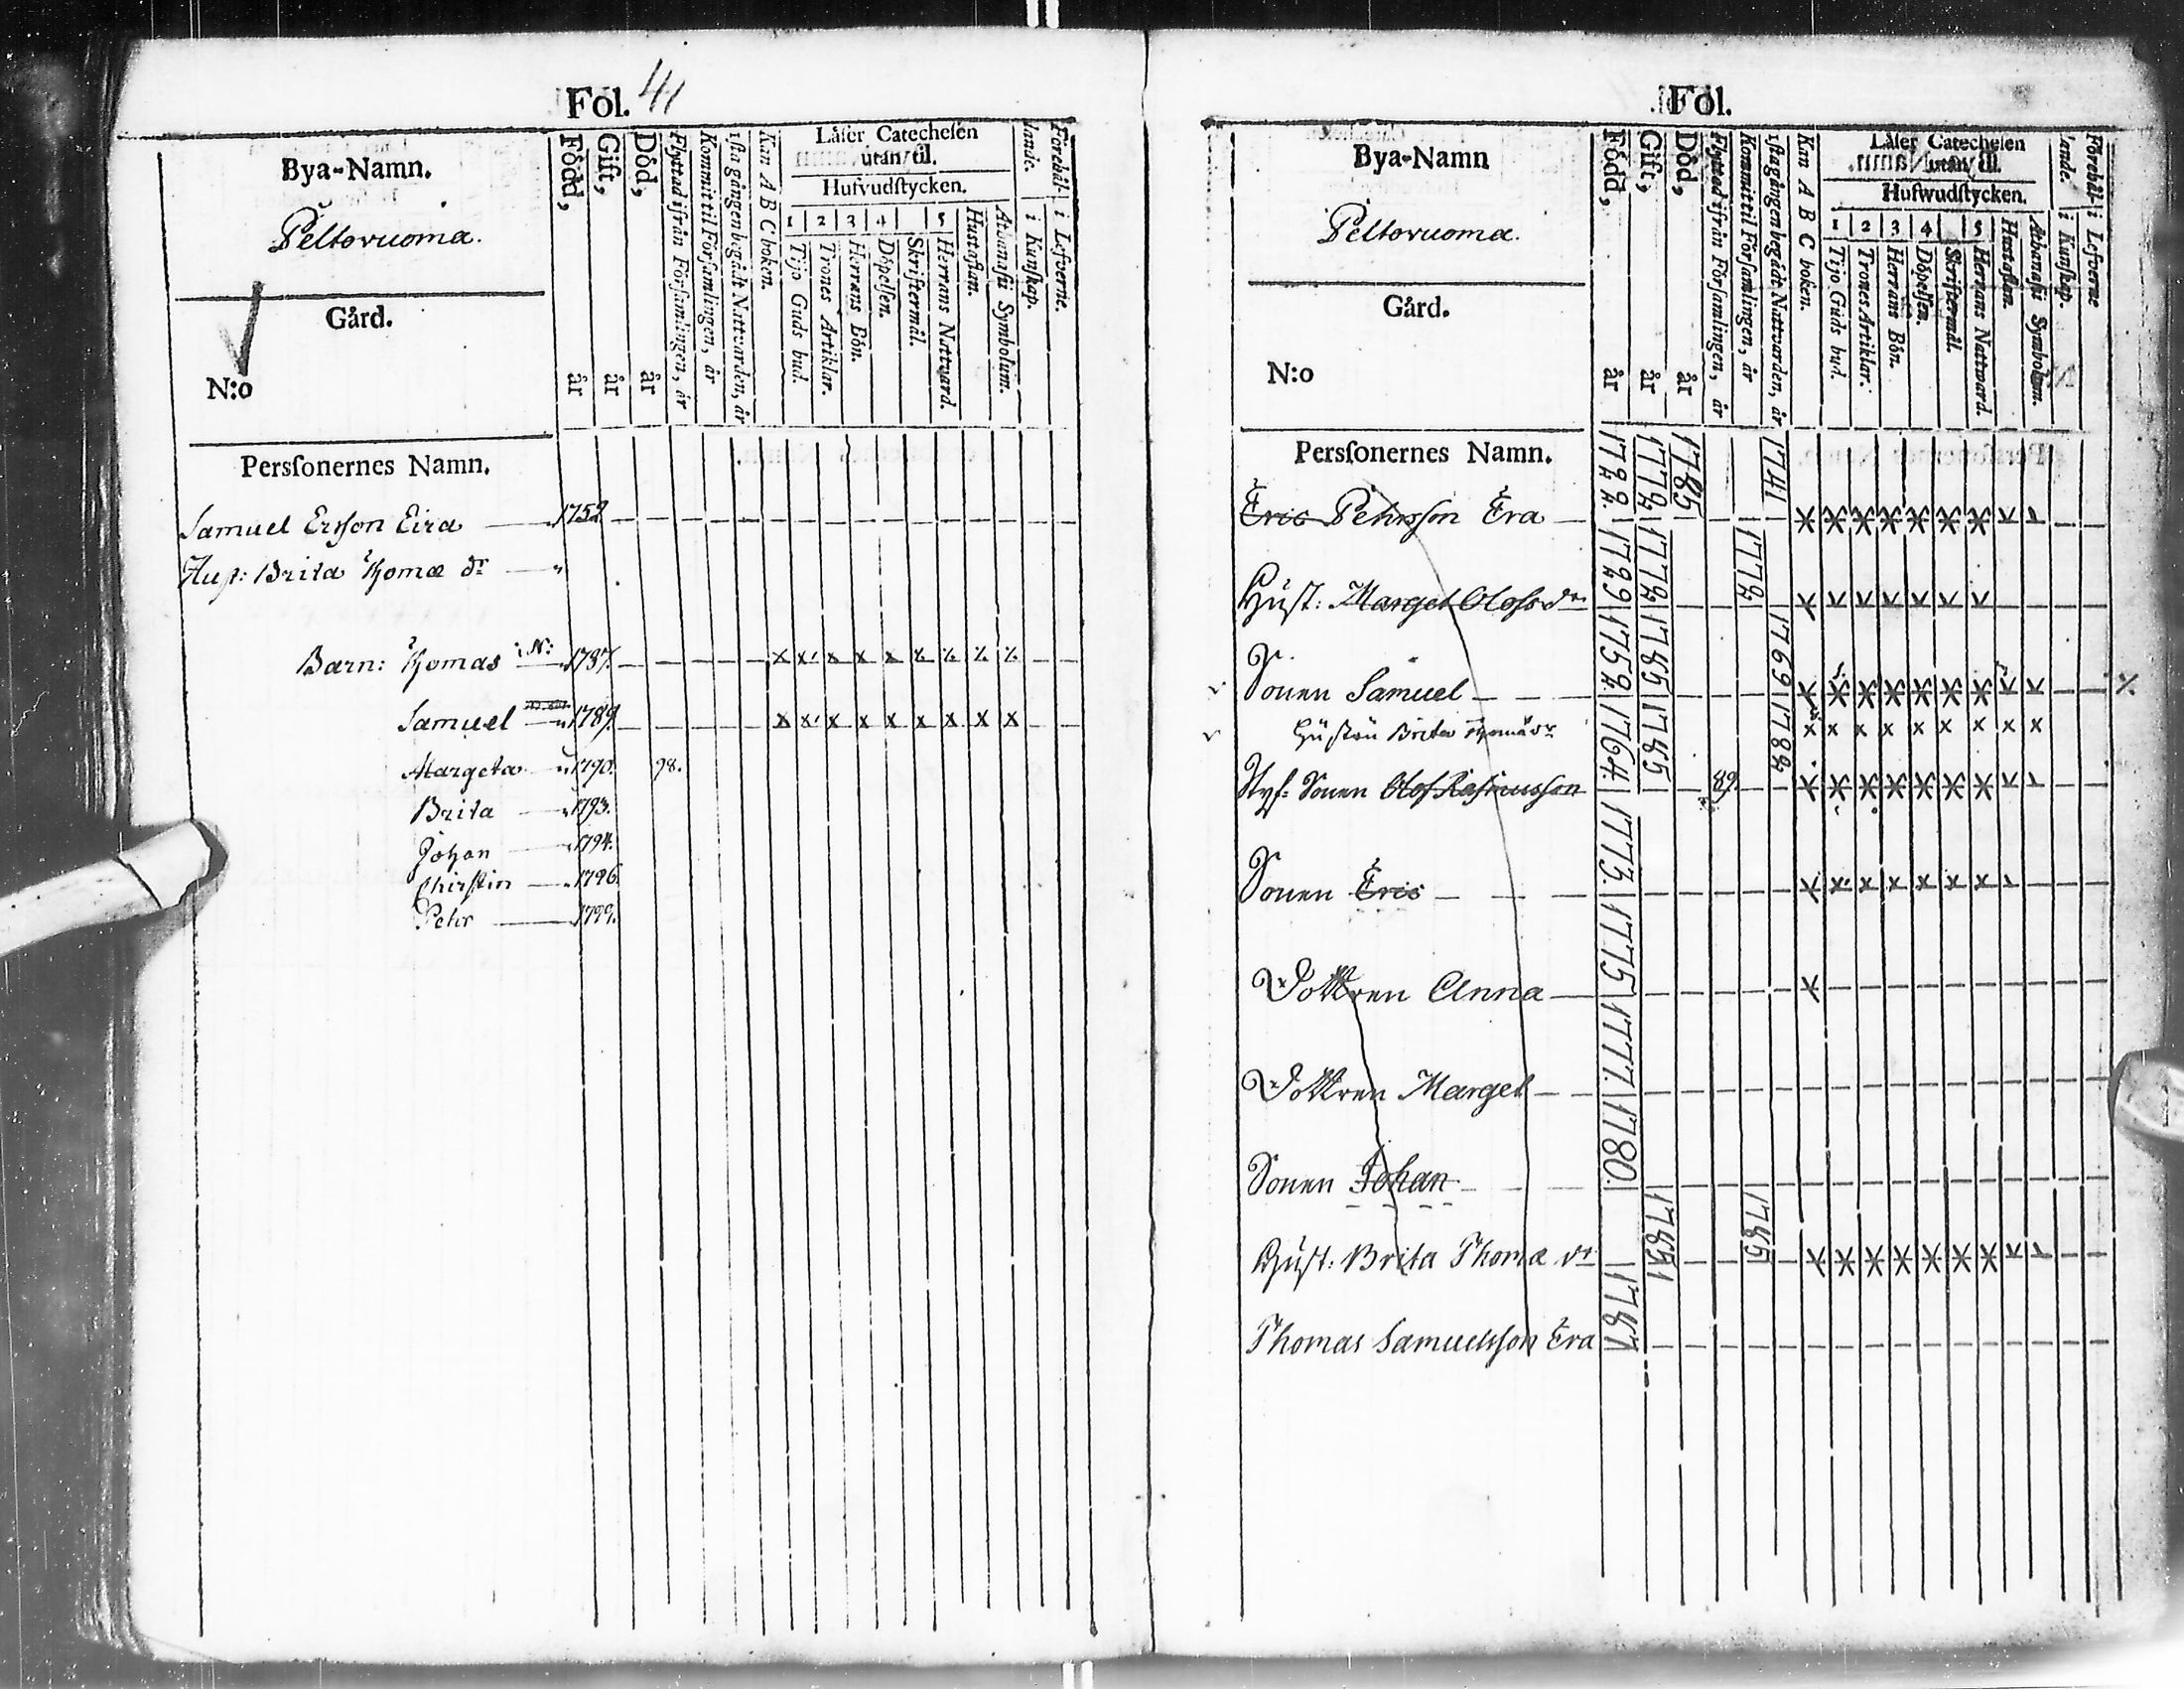 Fol. 41
Bya-Namn.
Peltovuoma.
Gård.
N:o
Född, år
Gift, år
Död, år
Flyttad ifrån Församlingen, år
Kommit til Församlingen, år
1sta gången begådt Nattvarden, år
Kan A B C boken.
Låser Catechesen
utan til.
Hufvudstycken.
1 2 3 4 5
Tijo Guds bud.
Trones Artiklar.
Herrans Bön.
Döpelsen.
Skriftermål.
Herrans Nattvard.
Hustaflan.
Athanasii Symbolum.
Förehål-lande.
i Kunskap.
i Lefverne.
Personernes Namn.
Samuel Ersson Eira 1752
Hust: Brita Thomæ dr "
Barn: Thomas 1787. x x x x x x x x x
Samuel 1789. x x x x x x x x x
Margeta 1790. 98.
Brita 1793.
Johan 1794.
Chirstin 1796.
Pehr 1799.
Fol.
Bya-Namn
Peltovuoma.
Gård.
N:o
Född, år
Gift, år
Död, år
Flyttad ifrån Församlingen, år
Kommit til Församlingen, år
1sta gången begådt Nattvarden, år
Kan A B C boken.
Låser Catechesen
utan til.
Hufwudstycken.
1 2 3 4 5
Tijo Guds bud.
Trones Artiklar.
Herrans Bön.
Döpelsen.
Skriftermål.
Herrans Nattward.
Hustaflan.
Athanasii Symbolum.
Förehål-lande.
i Kunskap.
i Lefverne
Personernes Namn.
Eric Pehrsson Era 1785 1741
Hust: Marget Olofsdr
Sonen Samuel 1769
Hustru Brita Thomædr
Styf-Sonen Olof Rasmusson 1764. 1785 89.
Sonen Eric 1773.
Dottren Anna 1775
Dottren Marget 1777.
Sonen Johan 1780.
Hust: Brita Thomæ dr 1785 1785
Thomas Samuelsson Era 1787